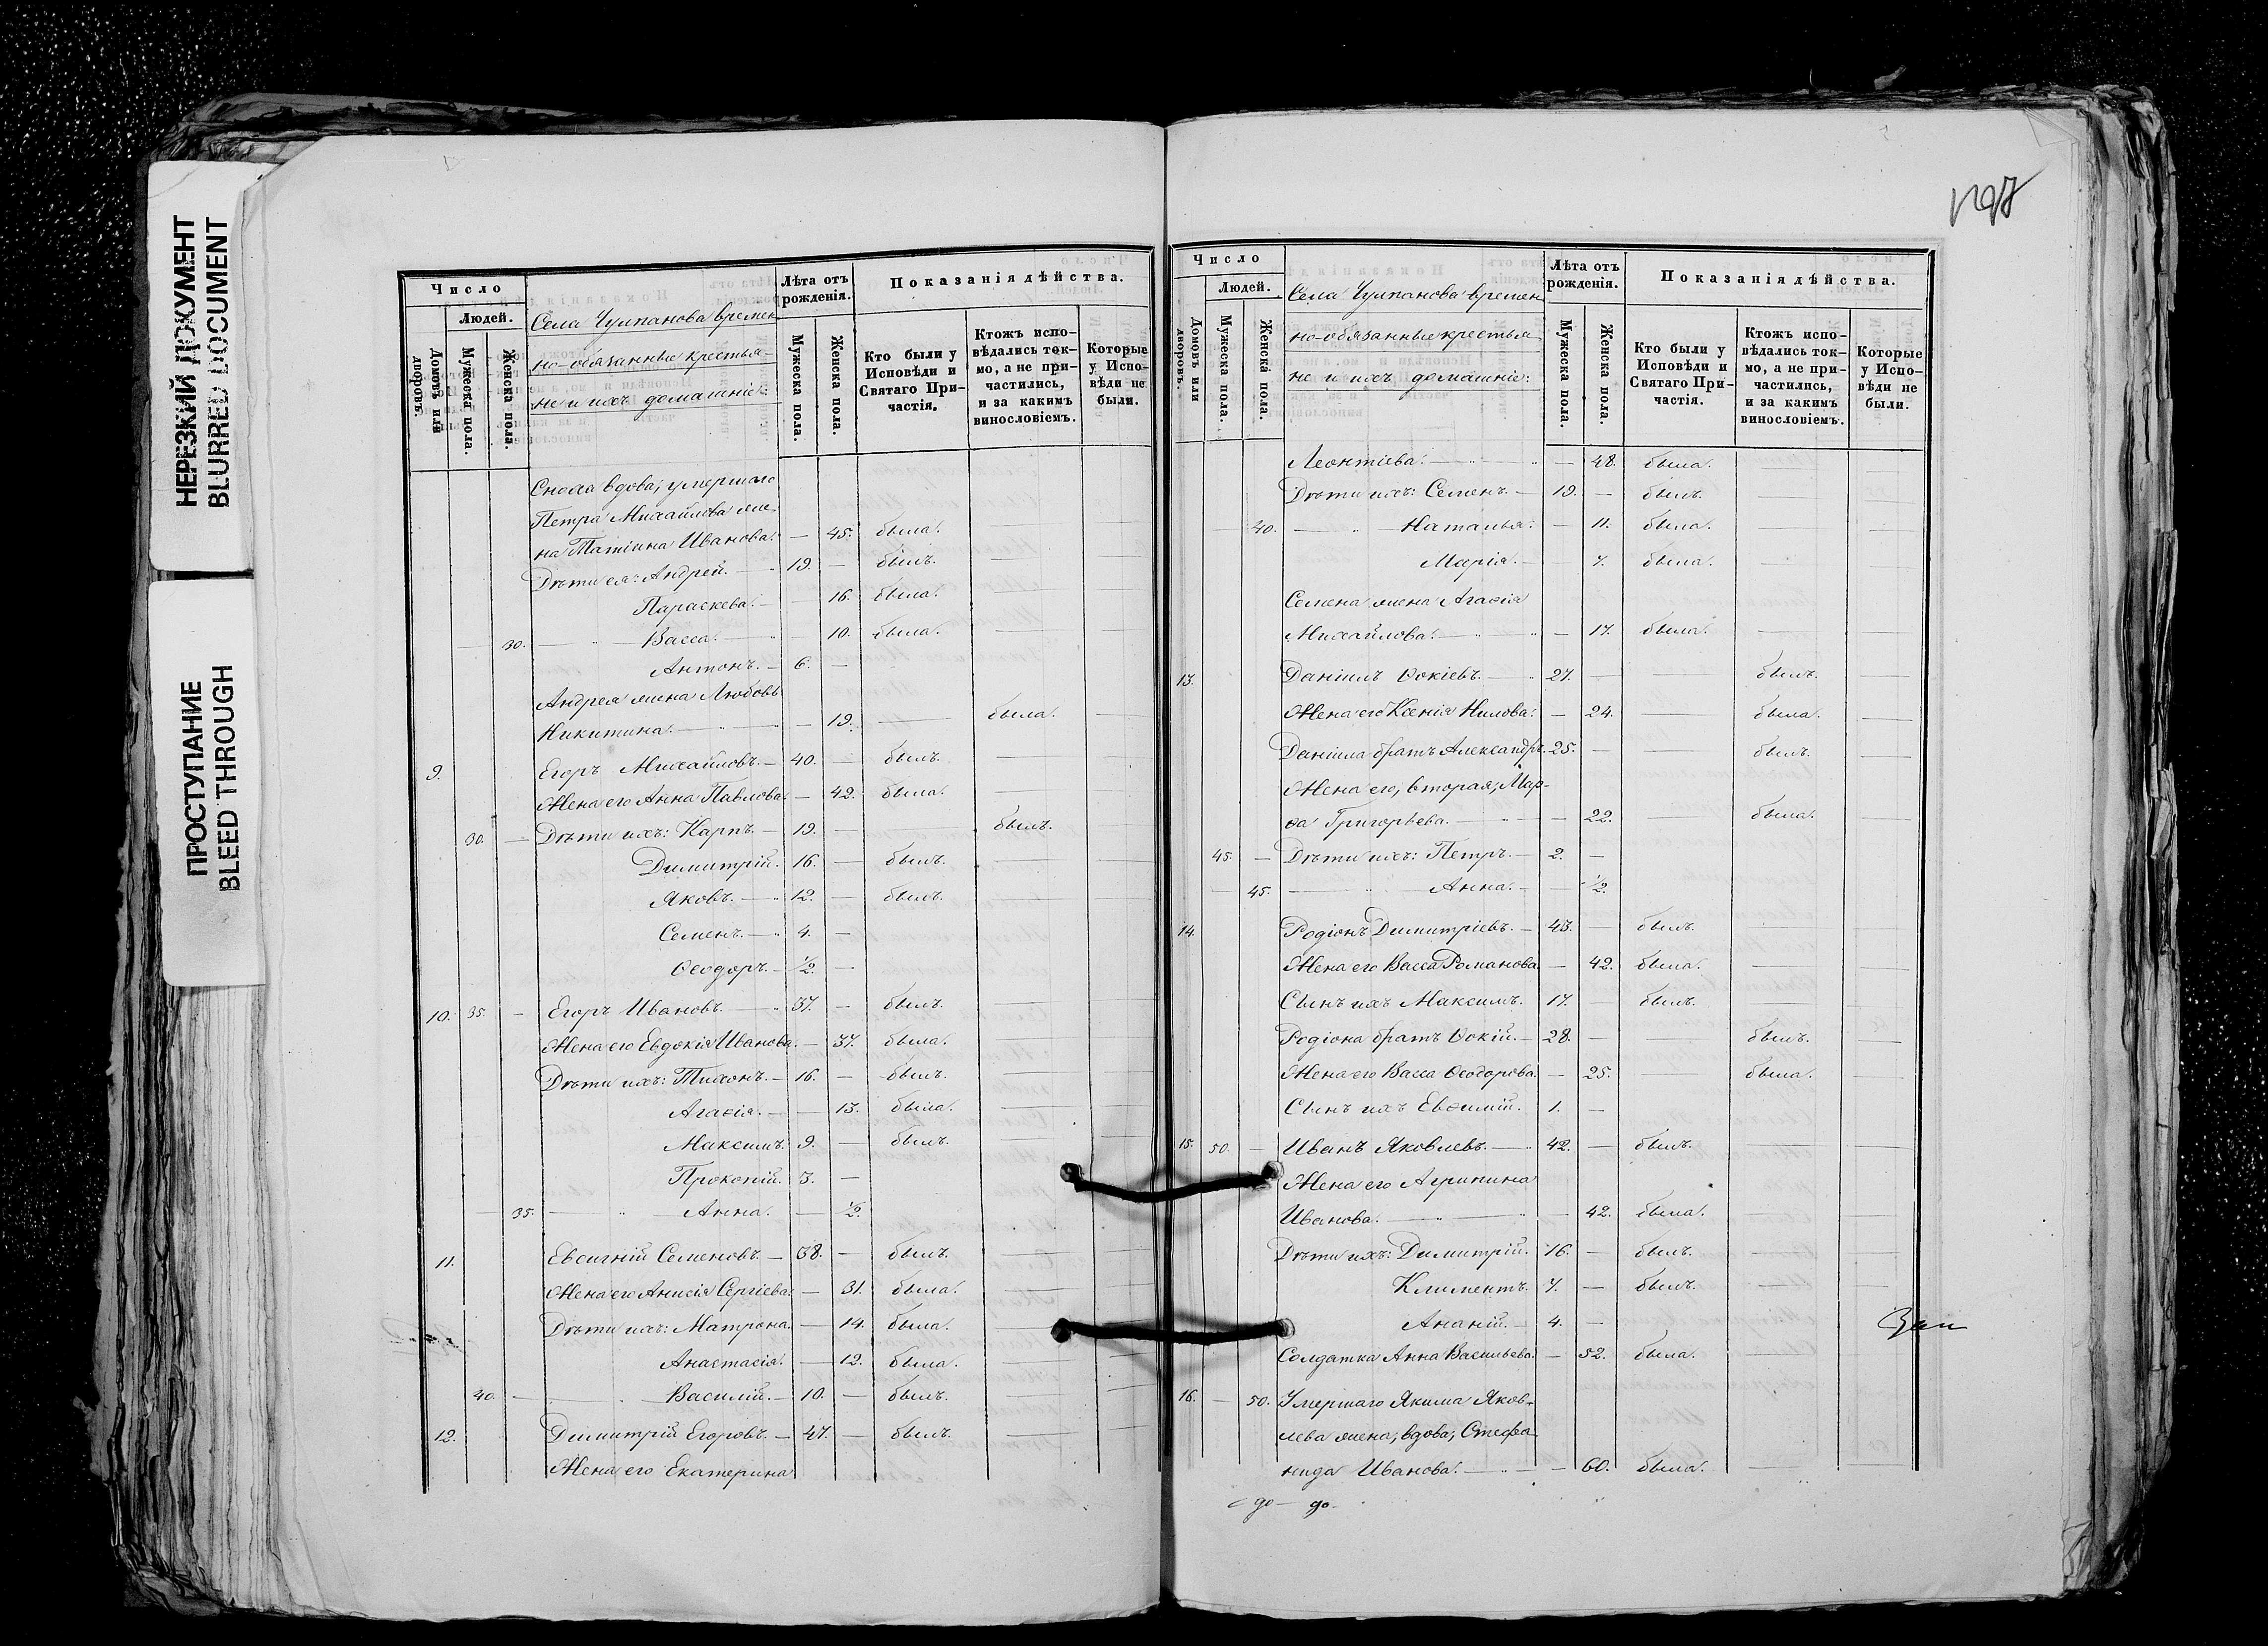 НЕРЕЗКИЙ ДОКУМЕНТ
BLURRED DOCUMENT
ПРОСТУПАНИЕ
BLEED THROUGH
Число
Людей.
Домовъ или дворовъ.
Мужеска пола.
Женска пола.
Села Чулпанова времен
но-обязанные крестья-
не и ихъ домашніе:
Лѣта отъ рожденія.
Мужеска пола.
Женска пола.
Показанія дѣйства.
Кто были у Исповѣди и Святаго При-частія.
Ктожъ испо-вѣдались ток-мо, а не при-частились, и за какимъ винословіемъ.
Которые у Испо-вѣди не были.
Сноха вдова, умершаго
Петра Михайлова же
на Татіана Иванова. — 45. была.
Дѣти ея: Андрей. — 19. — былъ.
Параскева. — 16. была.
30. — Васса. — 10. была.
Антонъ. — 6. —
Андрея жена Любовь
Никитина. — 19. — была.
9. Егоръ Михайловъ. — 40. былъ.
Жена его Анна Павлова. — 42. была.
30. — Дѣти ихъ: Карпъ. — 19. — былъ.
Димитрій. 16. — былъ.
Яковъ. — 12. — былъ.
Семенъ. — 4. —
Ѳеодоръ. — 1/2. —
10. 35. — Егоръ Ивановъ. — 37. — былъ.
Жена его Евдокія Иванова. — 37. была.
Дѣти ихъ: Тихонъ. — 16. — былъ.
Агаѳія. — 13. была.
Максимъ. 9. — былъ.
Прокопій. 3. —
35. — Анна. — 1/2.
11. Евсигній Семеновъ. — 38. — былъ.
Жена его Анисія Сергіева. — 31. была.
Дѣти ихъ: Матрона. — 14. была.
Анастасія. — 12. была.
40. — Василій. — 10. — былъ.
12. Димитрій Егоровъ. — 47. — былъ.
Жена его Екатерина
Число
Людей.
Домовъ или дворовъ.
Мужеска пола.
Женска пола.
Села Чулпанова времен
но-обязанные крестья
не и ихъ домашніе:
Лѣта отъ рожденія.
Мужеска пола.
Женска пола.
Показанія дѣйства.
Кто были у Исповѣди и Святаго При-частія.
Ктожъ испо-вѣдались ток-мо, а не при-частились, и за какимъ винословіемъ.
Которые у Испо-вѣди не были.
Леонтіева. — 48. была.
Дѣти ихъ: Семенъ. — 19. — былъ.
— 40. — Наталья. — 11. была.
Марія. — 7. была.
Семена жена Агаѳія
Михайлова. — 17. была.
13. Даніилъ Ѳокіевъ. — 27. — былъ.
Жена его Ксенія Нилова. — 24. — была.
Даніила братъ Александръ. 25. — былъ.
Жена его, вторая, Мар-
ѳа Григорьева. — 22. была.
45. — Дѣти ихъ: Петръ. — 2. —
— 45. — Анна. — 1/2.
14. Родіонъ Димитріевъ. — 43. — былъ.
Жена его Васса Романова. — 42. была.
Сынъ ихъ Максимъ. 17. — былъ.
Родіона братъ Ѳокій. — 28. — былъ.
Жена его Васса Ѳеодорова. — 25. — была.
Сынъ ихъ Евѳимій. 1. —
15. 50. — Иванъ Яковлевъ. — 42. — былъ.
Жена его Агрипина
Иванова. — 42. была.
Дѣти ихъ: Димитрій. 16. — былъ.
Климентъ. 7. — былъ.
Ананій. — 4. —
Солдатка Анна Васильева. — 52. была.
16. — 50. Умершаго Якима Яков-
лева жена, вдова, Стефа
нида Иванова. — 60. была.